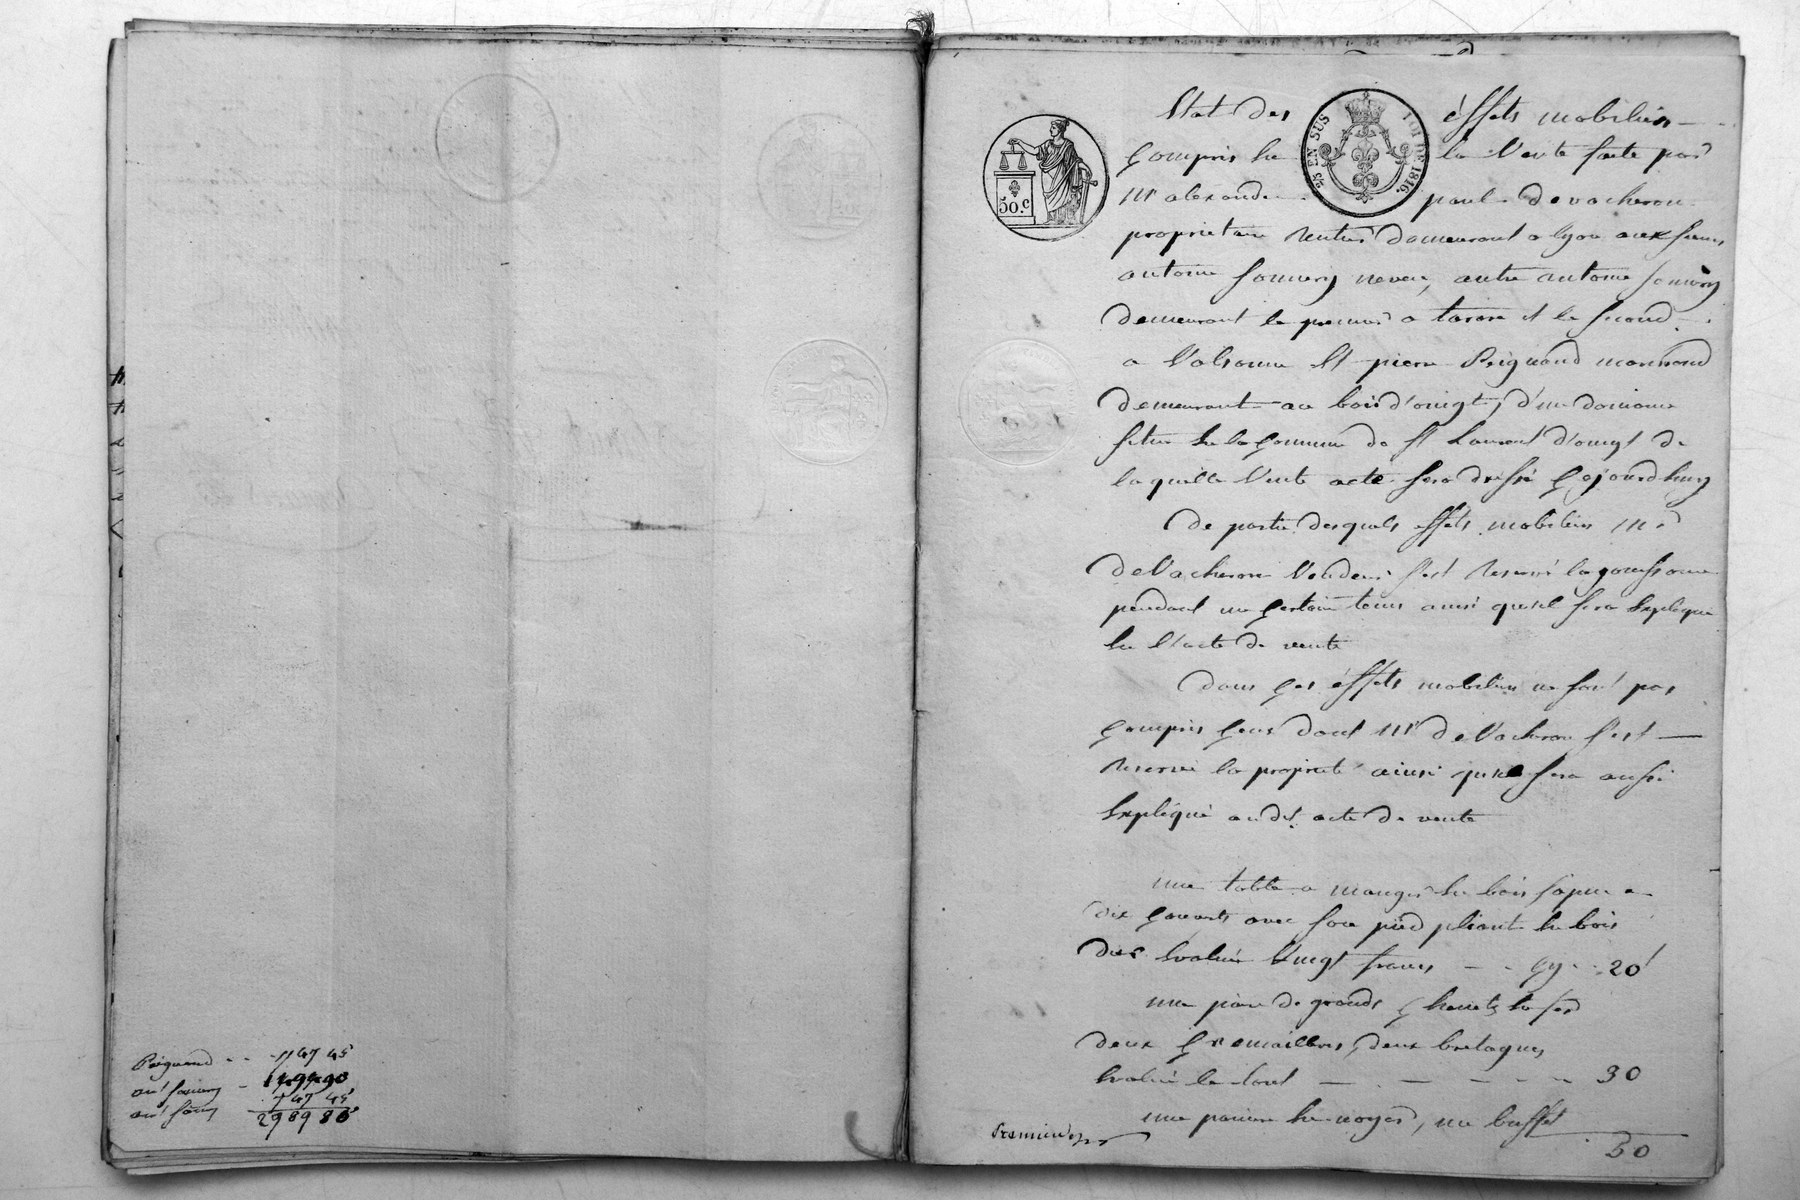 Piegnand - - 747 45
ant Sonnery - 1494 90
ant Sonnery 747 45
2989 80
50.c
2/5 EN SUS
LOI DE 1816.
Etat des éffets mobiliers
Compris en la Vente faite par
Mr alexandre paul devacheron
proprietaire rentier demeurant a lyon aux sieurs
antoine Sonnery neveu, autre antoine Sonnery
demeurant le premier a tarare et le second
a Valsonne et pierre marchand
demeurant au bois d'oingt, d'un domaine
situé en la Commune de St Laurent d'oingt de
laquelle Vente acte sera dressé Cejourd'huy
de partie desquels effets mobiliers Mr
deVacheron Vendeur s'est reservé la jouissance
pendant un Certain tems ainsi qu'il sera Expliqué
En l'acte de vente
dans Ces éffets mobiliers ne sont pas
Compris Ceux dont Mr deVacheron s'est
reservé la propriété ainsi qu'il sera aussi
Expliqué au dit acte de vente
une table a manger en bois sapin a
dix Couverts avec son pied pliant en bois
dur Evalué Vingt francs - - Cy - - 20f
une paire de grands Chenets en fer
deux Cremailleres, deux bretagnes
Evalué le tout - - - - 30
une paniere en noyer, un buffet
50
Premier